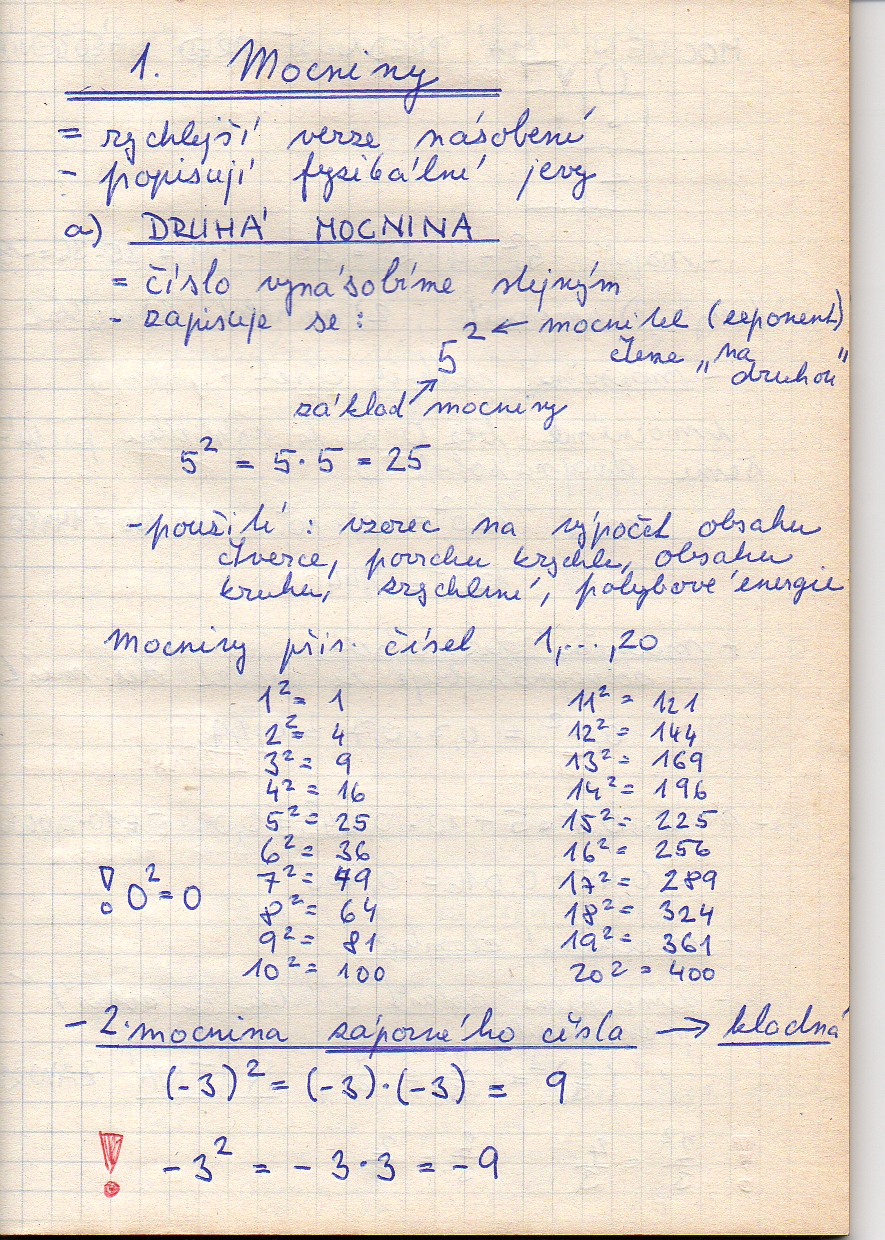 1. Mocniny
= rychlejší verze násobení
- popisují fyzikální jevy
a) DRUHÁ MOCNINA
= číslo vynásobíme stejným
- zapisuje se :
5² ← mocnitel (exponent)
čteme „na
druhou"
základ mocniny
5² = 5·5 = 25
- použití : vzorec na výpočet obsahu
čtverce, povrchu krychle, obsahu
kruhu, zrychlení, pohybové energie
Mocniny přir. čísel 1,...,20
1² = 1 11² = 121
2² = 4 12² = 144
3² = 9 13² = 169
4² = 16 14² = 196
5² = 25 15² = 225
6² = 36 16² = 256
7² = 49 17² = 289
! 0² = 0
8² = 64 18² = 324
9² = 81 19² = 361
10² = 100 20² = 400
- 2. mocnina záporného čísla → kladná
(-3)² = (-3)·(-3) = 9
! -3² = - 3·3 = -9